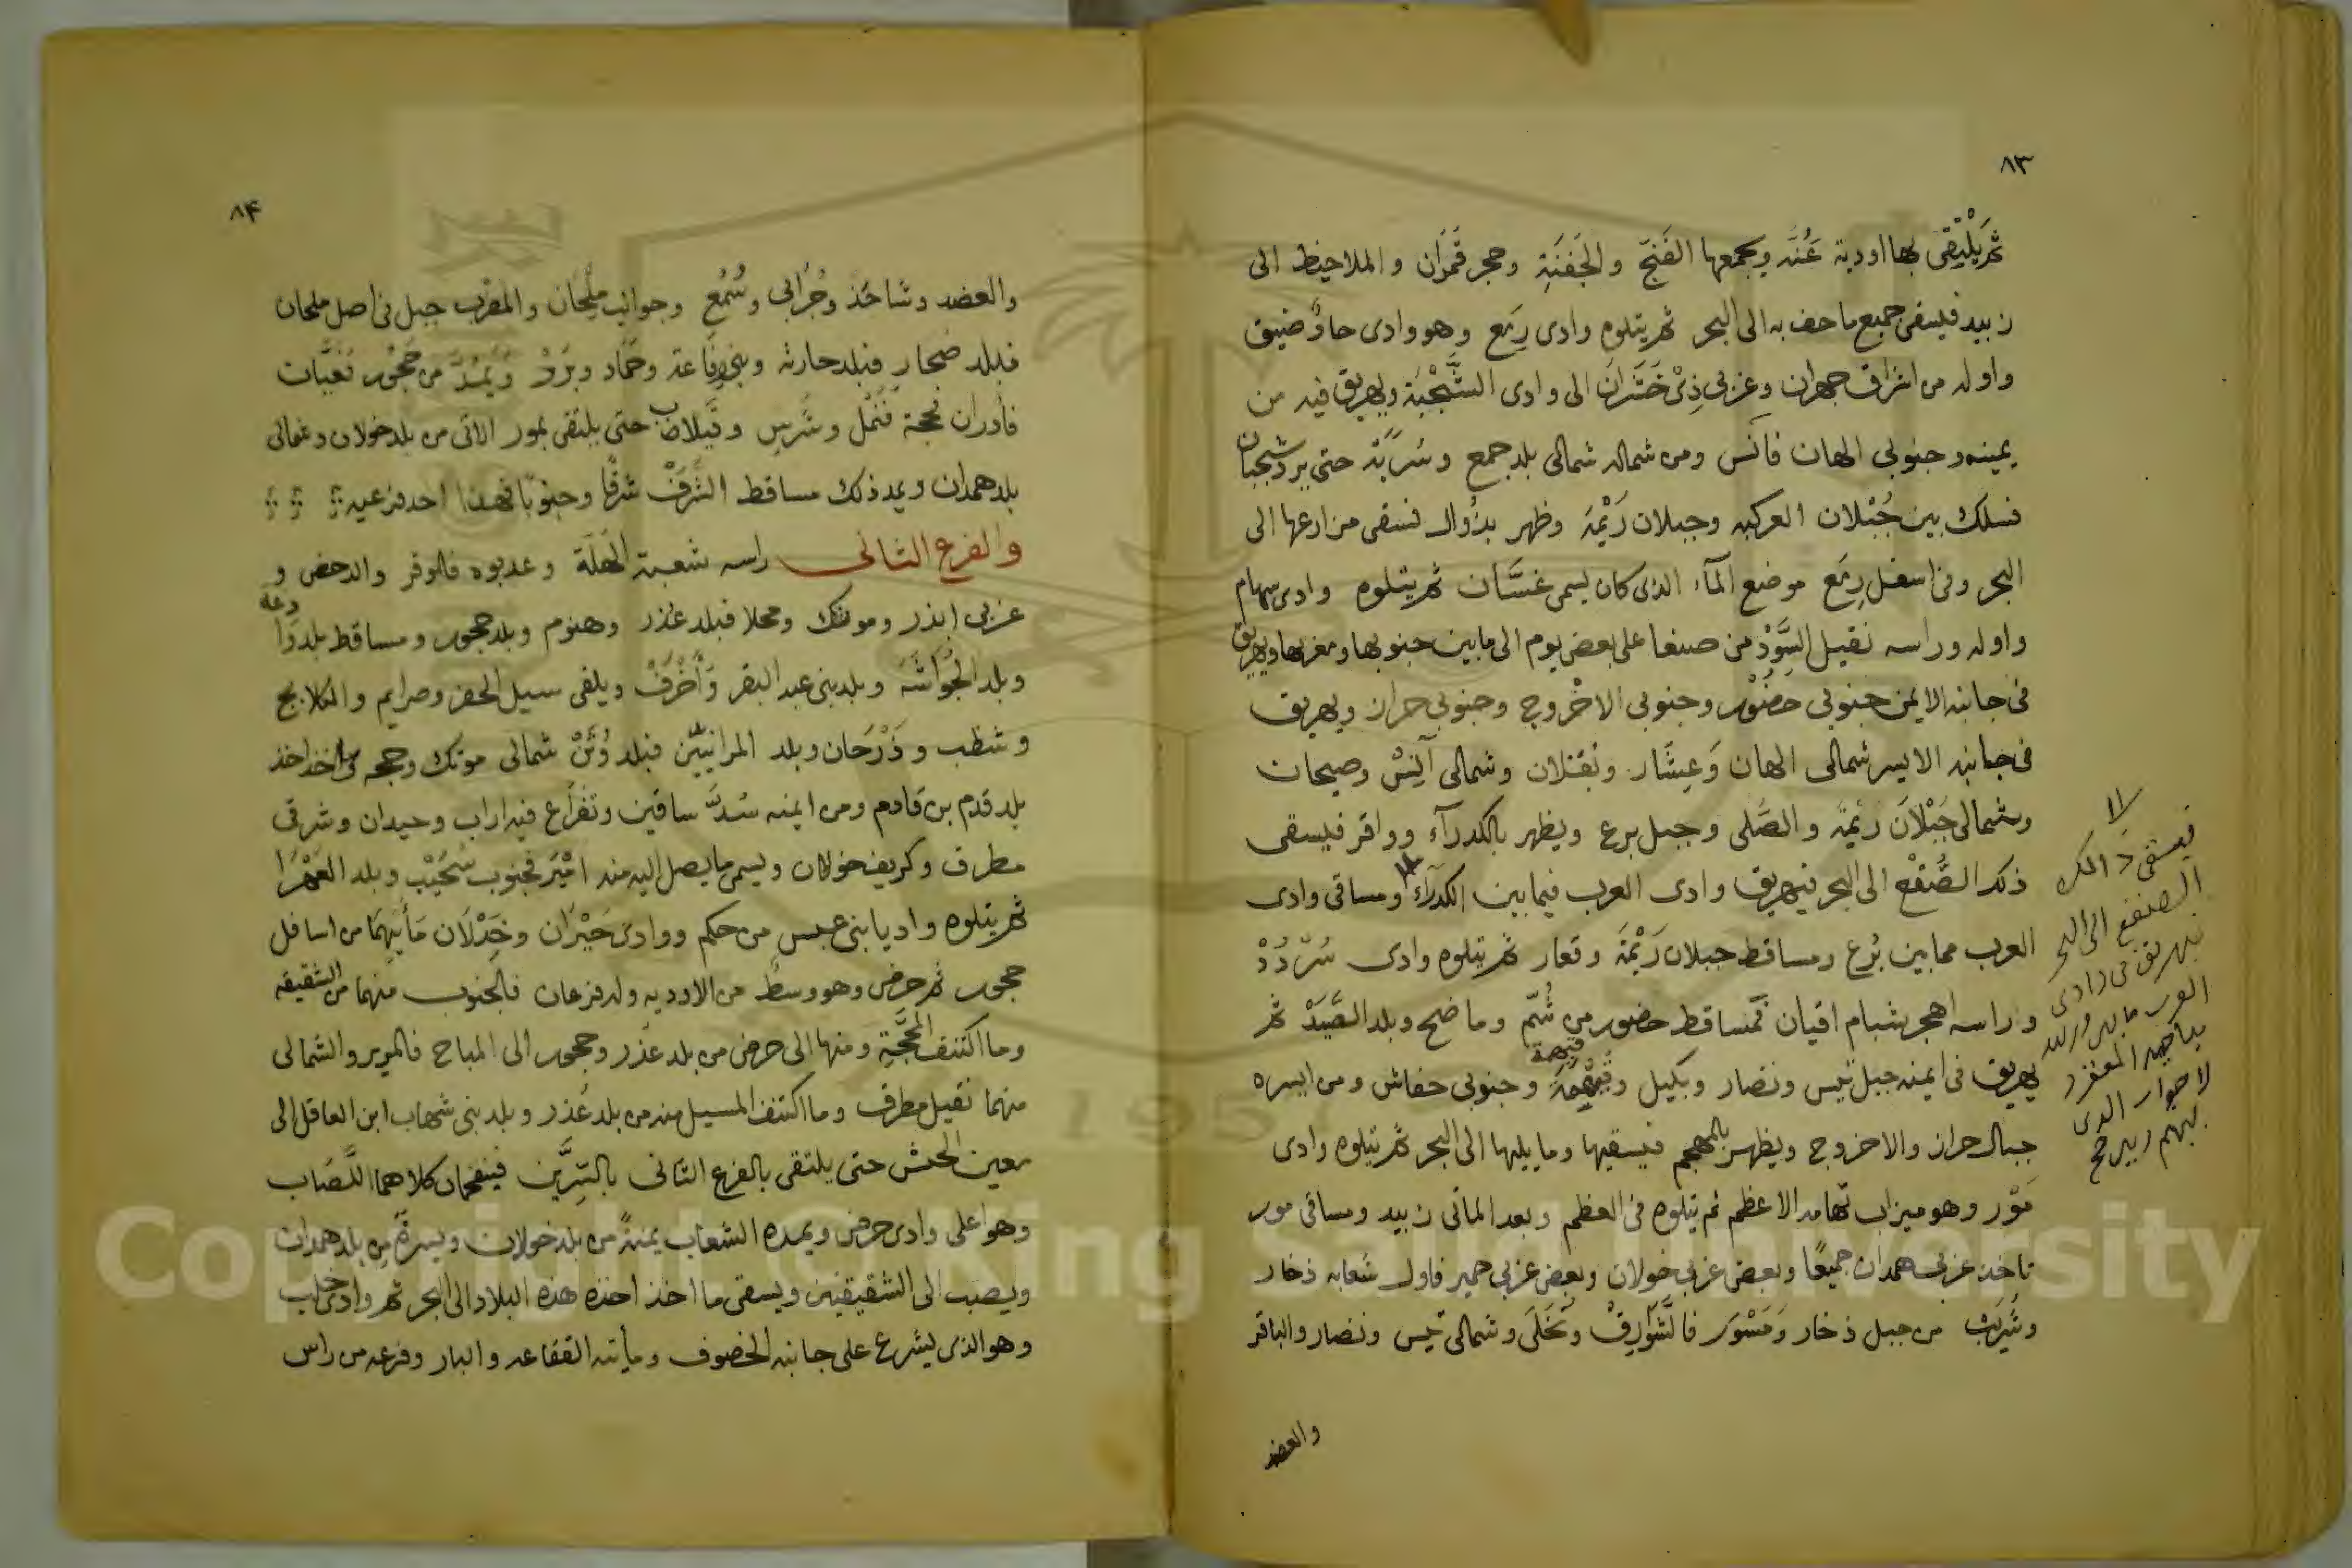 ٨٣
ثم يَلْتِقى بها اودية عُنَّه ويجمعها الفَنَجّ والجَفنَةِ وحجر قَمَران والملاحيظ الى
زبيد فيسقى جميع ما حف به الى البحر ثم يتلوه وادى رِمَع وهو وادى حادّ ضيق
واوله من اشراق جهران وغربى ذِىْ خَشَران الى وادى الشَّجْبَة ويهريق فيه من
يمينه وجنوبى الهان فانَس ومن شماله شمالى بلد جمع وسُرَبَة حتى يرد شجبان
فسلك بين جُبْلان العركبه وجبلان رَيْمَة وظهر بذُوال فسقى مزارعها الى
البحر وفى اسفل رِمَع موضع المآء الذى كان يسمى غسَّان ثم يتلوه وادى سهام
واوله وراسه نقيل السَّوْد من صنعا على بعض يوم الى ما بين جنوبها ومغربها ويهريق
فى جانبه الايمن جنوبى حَضُوْر وجنوبى الاخْروج وجنوبى حراز ويهريق
فى جانبه الايسر شمالى الهان وَعِشَار وبقلان وشمالى آنِسْ وصيحان
وشمالى جَبْلَان رَيْمَة والصَّلى وجبل برع ويظهر بالكدرآء وواقر فيسقى
ذلك الصُّقْع الى البحر فيهريق وادى العرب فيما بين الكدرآء ومساقى وادى
العرب مما بين بُرَع ومساقط جبلان رَيْمَة وقعار ثم يتلوه وادى سُرْدُدْ
وراسه اهجر شبام اقيان فمساقط حضور من شُمّ وما ضح وبلد الصَّيَدْ ثم
يهريق فى ايمنه جبل تيس ونضار وبكيل وقَيْهمَة وجنوبى حفاش ومن ايسره
قيهمة
جبال حراز والاخروج ويظهر بالمهجم فيسقيها وما يليها الى البحر ثم يتلوه وادى
مَوْر وهو ميزاب تهامه الاعظم ثم يتلوه فى العظم وبعد المأتى زبيد ومساقى مور
تاخذ غربى همدان جميعًا وبعض غربى خولان وبعض غربى حمير فاول شعابه ذخار
وشَرْيَب من جبل ذخار وَمَسْوَر فالشَّوَارِقْ وتُخَلَى وشمالى تيس ونضار والباقر
والعضد
الصقع الى البحر
فيهريق فى وادى
٨۴
والعضد وشاحذ وجُرَابى وسُمُع وجوانب مِلْحَان والمقرب جبل فى اصل ملحان
فبلد صحار فبلد حارثه وبنى رِفَاعة وحمَاد وبَرَدْ وَيَمُدَّ من حَجُور نَغَيَّات
فأدران فجة فَنَمْل وشَرِس وقَيلاب حتى يلتقى بمور الاتى من بلد خولان وشمالى
بلد همدان ويمد ذلك مساقط الشَرَفْ شرقًا وجنوبًا فهذا احد فرعيه
والفرع الثانى راسه شعبة الحَلَة وعدبوه فالوقر والدحض و
غربى ابذر وموتك ومحلا فبلد عُذر وهنوم وبلد حجور ومساقط بلد وَادعة
وبلد الجُوَاشَه وبلد بنى عبد البقر وَأخْرَفْ ويلقى سيل الحفر وصرايم والكلابح
وشظب وذَرْحَان وبلد المرانيين فبلد وُثَنْ شمالى موتك وحجه من اخذ اخذ
بلد قدم بن قادم ومن ايمنه سَدّ ساقين وتَضْرَاع فيدارب وحيدان وشرقى
مطرف وكريف خولان ويسمى ما يصل اليه منه امْيَر فجنوب سُحَيْب وبلد العَهْرَا
ثم يتلوه واديا بنى عبس من حكم ووادى حَيْرَان وخِدْلَان مَأتيهمَا من اسافل
حجور ثم حرض وهو وسطٌ من الاوديه وله فرعان فالجنوب منهما من الشقيقه
وما اكتنف المحَجَّةِ ومنها الى حرض من بلد عُذر وحجور الى المباح فالموير والشمالى
منهما نقيل مطرف وما اكتنف المسيل منه من بلد عُذر وبلد بنى شهاب ابن العاقل الى
معين الحنش حتى يلتقى بالفرع الثانى بالسِّرَّين فينفحان كلاهما اللّصَاب
وهو اعلى وادى حرض ويمده الشعاب يمنةً من بلد خولان ويسرةً من بلد همدان
ويصب الى الشقيقين ويسقى ما اخذ اخذه هذه البلاد الى البحر ثم وادى خلب
وهو الذى يشرع على جانبه الخصوف ومأتيه القفاعه والبار وفرعه من راس
Copyright © King Saud University
1957